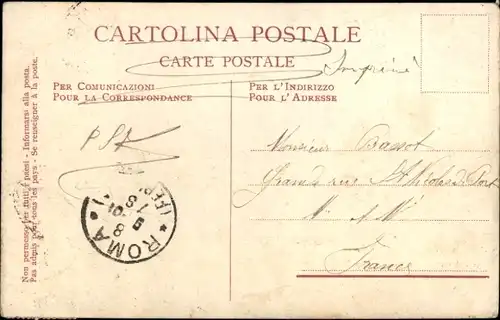 CARTOLINA POSTALE
CARTE POSTALE
Imprimé
PER COMUNICAZIONI
POUR LA CORRESPONDANCE
PER L'INDIRIZZO
POUR L'ADRESSE
Non permesso per tutti i paesi - Informarsi alla posta.
Pas admis pour tous les pays - Se renseigner à la poste.
Monsieur Bassot
Grande rue St Nicolas de Port
M. et M.
France
ROMA